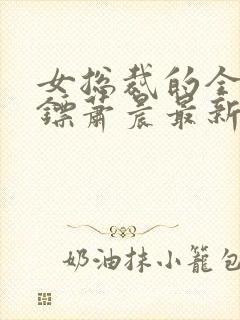 女总裁的全
镖萧晨最新
奶油抹小笼包